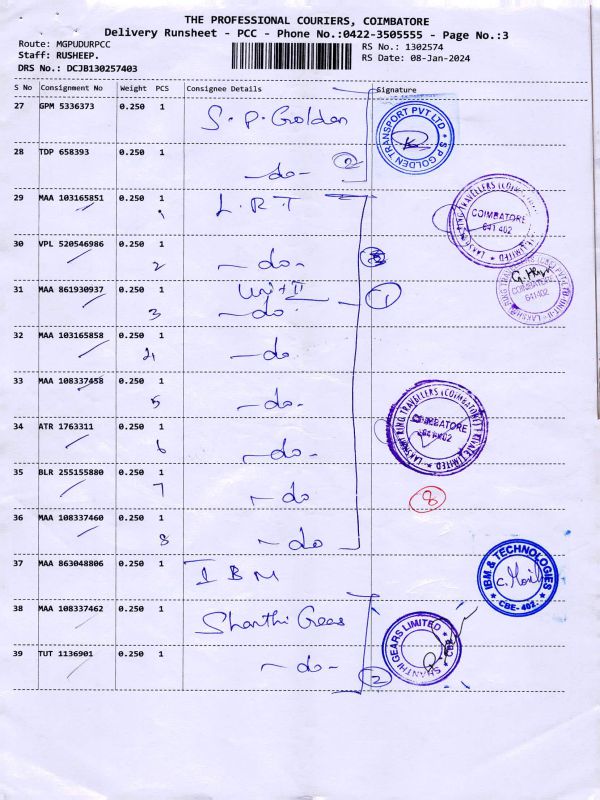 THE PROFESSIONAL COURIERS, COIMBATORE
Delivery Runsheet - PCC - Phone No.:0422-3505555 - Page No.:3
Route: MGPUDURPCC
Staff: RUSHEEP.
DRS No.: DCJB130257403
RS No.: 1302574
RS Date: 08-Jan-2024
S No Consignment No Weight PCS Consignee Details Signature
27 GPM 5336373 0.250 1 S.P. Golden
S P GOLDEN TRANSPORT PVT LTD
28 TDP 658393 0.250 1 -do- 2
29 MAA 103165851 0.250 1 L.R.T
1
COIMBATORE
641 402
30 VPL 520546986 0.250 1 -do-
2
31 MAA 861930937 0.250 1 Unit II 1
3 -do-
COIMBATORE
641402
32 MAA 103165858 0.250 1 -do
4
33 MAA 108337458 0.250 1 -do-
5
LAKSHMI RING TRAVELLERS (COIMBATORE) PRIVATE LIMITED
COIMBATORE
34 ATR 1763311 0.250 1 -do-
6
35 BLR 255155880 0.250 1 -do
7
8
36 MAA 108337460 0.250 1 -do
8
37 MAA 863048806 0.250 1 IBM
IBM & TECHNOLOGIES
CBE-402
38 MAA 108337462 0.250 1 Shanthi Gears
SHANTHI GEARS LIMITED
CBE
39 TUT 1136901 0.250 1 -do- 2